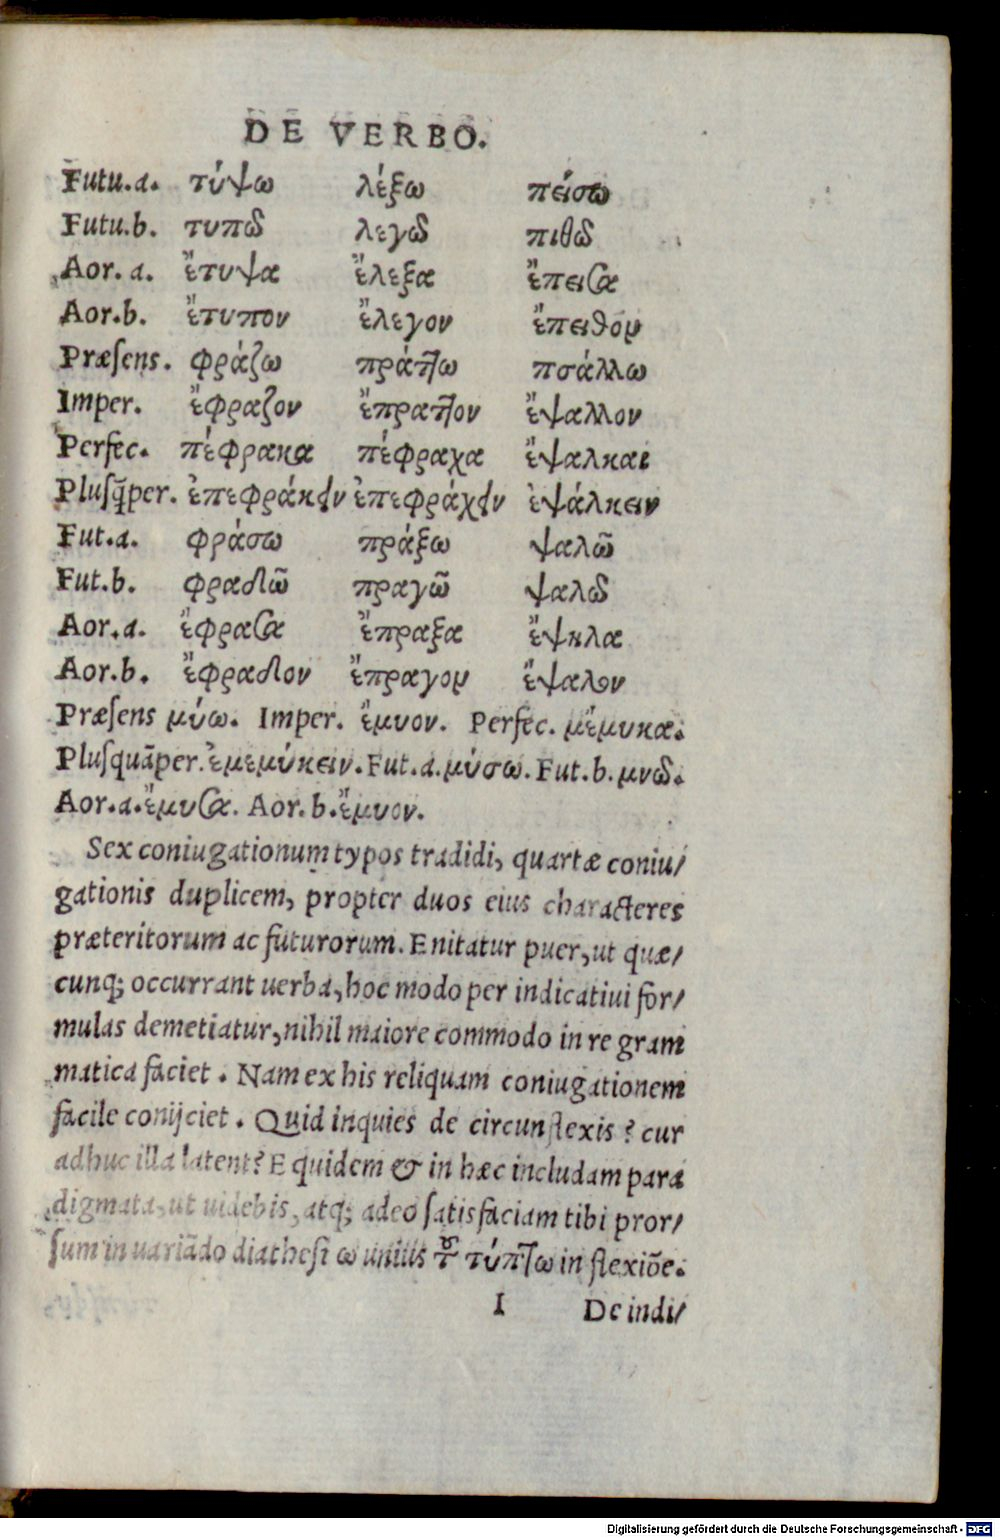 DE VERBO.
Futu.a. τύψω λέξω πείσω
Futu.b. τυπῶ λεγῶ πιθῶ
Aor.a. ἔτυψα ἔλεξα ἔπεισα
Aor.b. ἔτυπον ἔλεγον ἔπειθον
Præsens. φράζω πράττω πσάλλω
Imper. ἔφραζον ἔπραττον ἔψαλλον
Perfec. πέφρακα πέφραχα ἔψαλκαι
Plusq̃per. ἐπεφράκειν ἐπεφράχειν ἐψάλκειν
Fut.a. φράσω πράξω ψαλῶ
Fut.b. φραδῶ πραγῶ ψαλῶ
Aor.a. ἔφρασα ἔπραξα ἔψηλα
Aor.b. ἔφραδον ἔπραγον ἔψαλον
Præsens μύω. Imper. ἔμυον. Perfec. μέμυκα.
Plusquãper. ἐμεμύκειν. Fut.a. μύσω. Fut.b. μυῶ.
Aor.a. ἔμυσα. Aor.b. ἔμυον.
Sex coniugationum typos tradidi, quartæ coniu/
gationis duplicem, propter duos eius characteres
præteritorum ac futurorum. Enitatur puer, ut quæ/
cunq; occurrant uerba, hoc modo per indicatiui for/
mulas demetiatur, nihil maiore commodo in re gram
matica faciet. Nam ex his reliquam coniugationem
facile conijciet. Quid inquies de circunflexis? cur
adhuc illa latent? Equidem & in hæc includam para
digmata, ut uidebis, atq; adeo satisfaciam tibi pror/
sum in uariãdo diathesi ω unius τοῦ τύπτω in flexiõe.
I De indi/
Digitalisierung gefördert durch die Deutsche Forschungsgemeinschaft - DFG